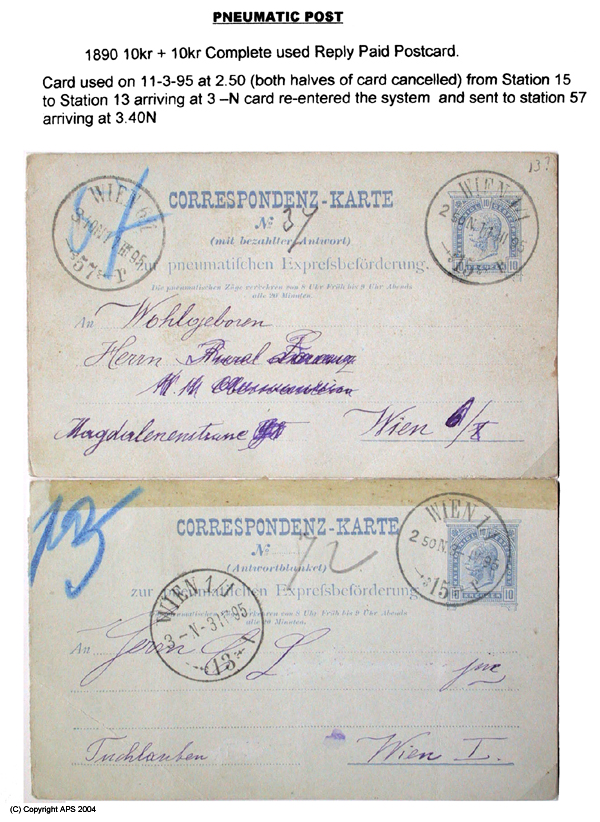 PNEUMATIC POST
1890 10kr + 10kr Complete used Reply Paid Postcard.
Card used on 11-3-95 at 2.50 (both halves of card cancelled) from Station 15
to Station 13 arriving at 3 –N card re-entered the system and sent to station 57
arriving at 3.40N
137
57
WIEN 6/1
WIEN 1/1
2 50N. 11 III 95
15
10 10
CORRESPONDENZ-KARTE
№ 34
(mit bezahlter Antwort)
zur pneumatischen Expressbeförderung.
Die pneumatischen Züge verkehren von 8 Uhr Früh bis 9 Uhr Abends
alle 20 Minuten.
An Wohlgeboren
Herrn
Magdalenenstrasse Wien 6/
13
CORRESPONDENZ-KARTE
№ 72
(Antwortblanket)
zur pneumatischen Expressbeförderung.
pneumatischen Züge verkehren von 8 Uhr Früh bis 9 Uhr Abends
alle 20 Minuten.
WIEN 1/1
2 50N. 95
15
10 10
WIEN 1/1
3-N-3 95
13
An Herrn L
Tuchlauben Wien I.
(C) Copyright APS 2004